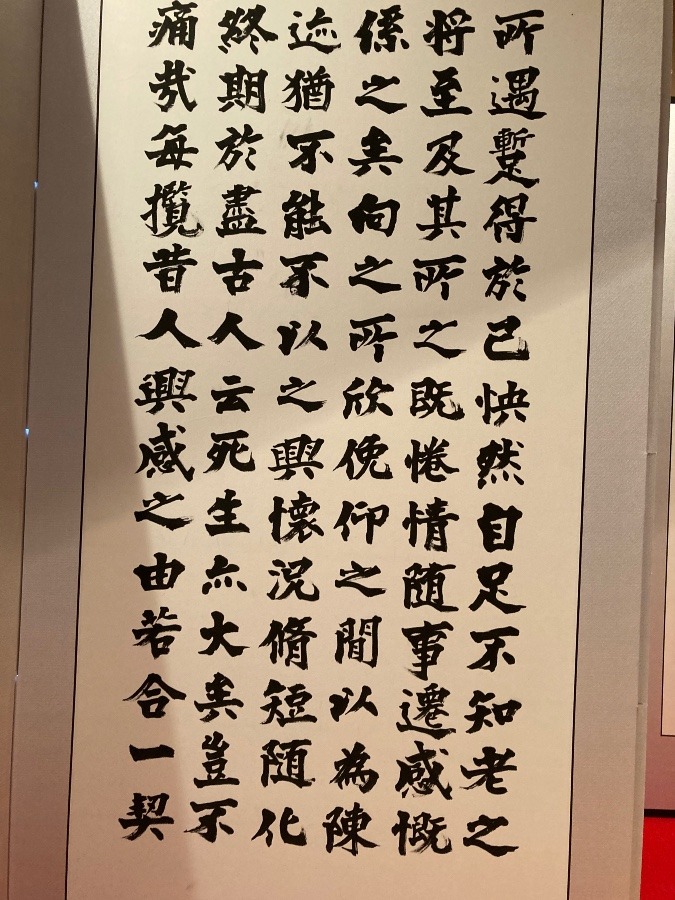 所遇蹔得於己怏然自足不知老之
将至及其所之既惓情随事遷感慨
係之矣向之所欣俛仰之間以為陳
迹猶不能不以之興懐况脩短随化
終期於盡古人云死生亦大矣豈不
痛哉每攬昔人興感之由若合一契